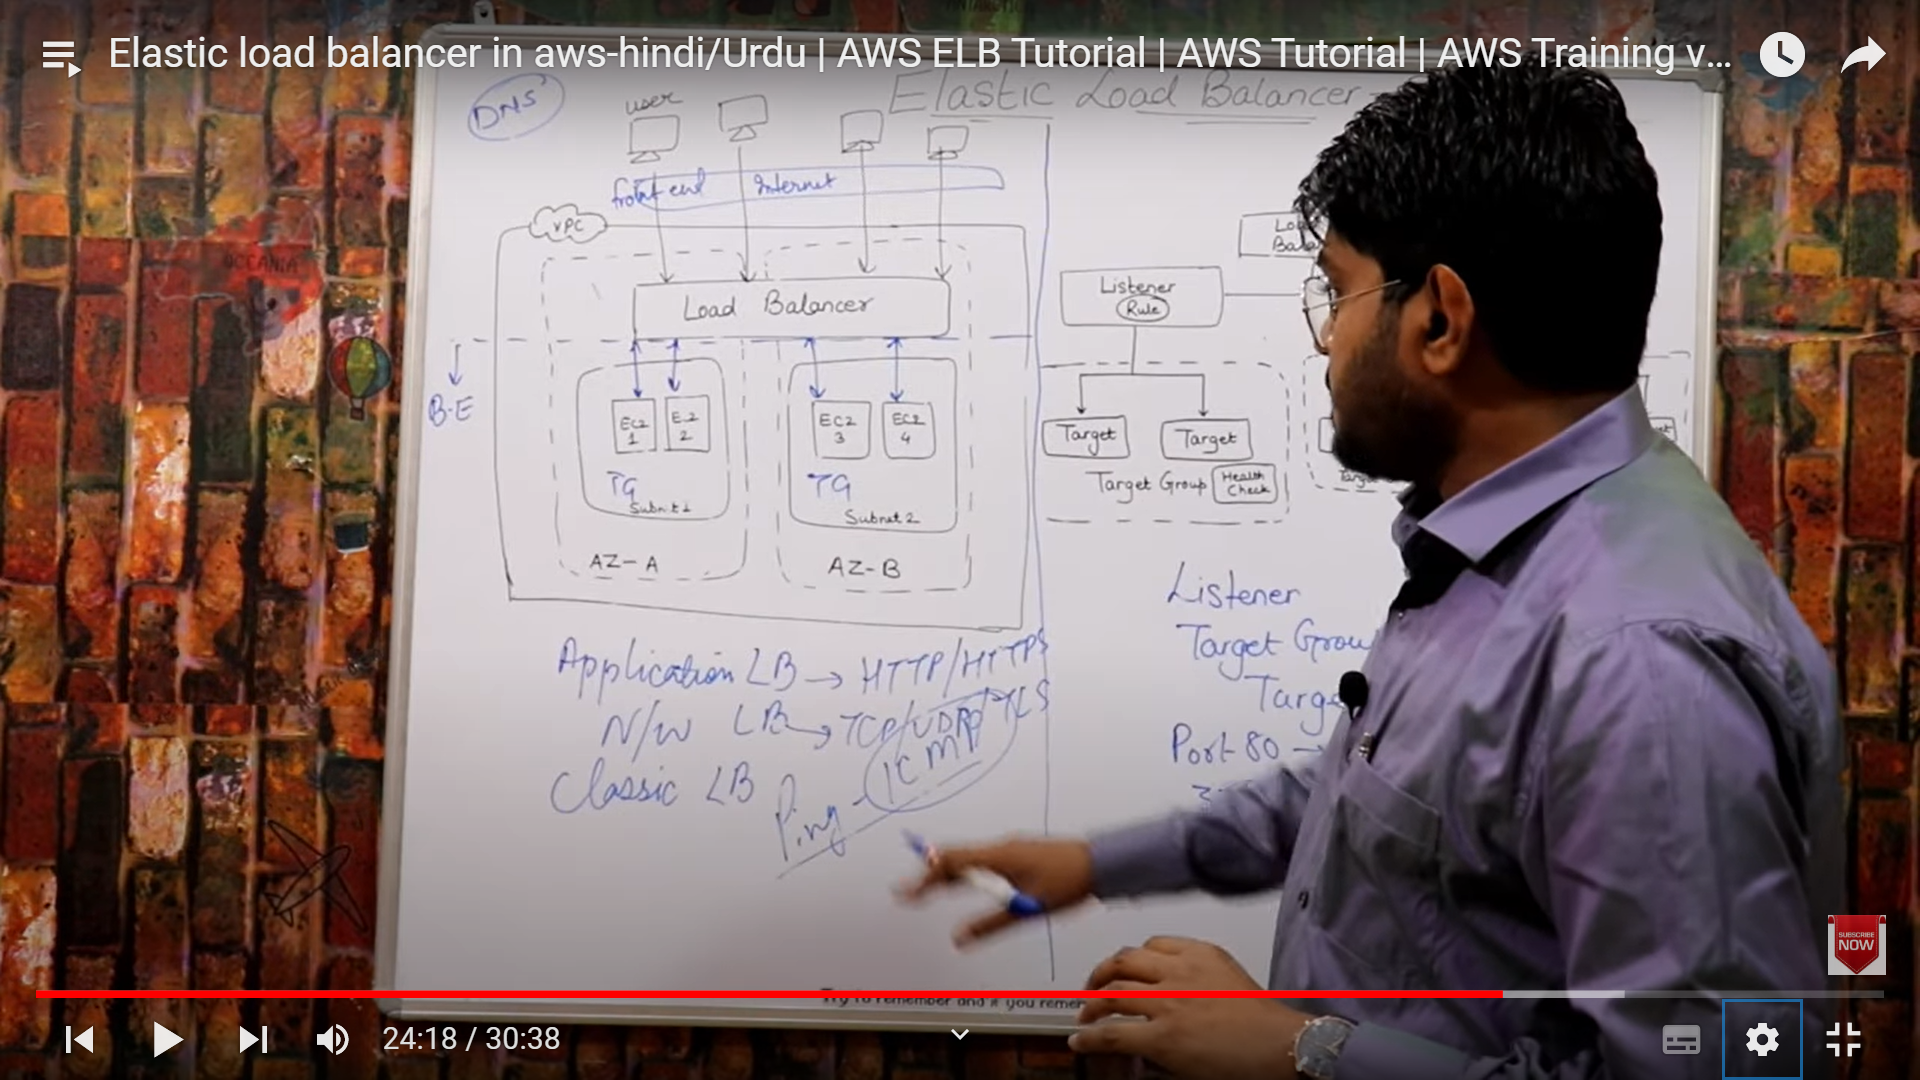 Elastic load balancer in aws-hindi/Urdu | AWS ELB Tutorial | AWS Tutorial | AWS Training v...
DNS
user
Elastic Load Balancer
front end Internet
VPC
Load Balancer
B-E
EC2 1
2
EC2 3
EC2 4
TG
Subnet 1
TG
Subnet 2
AZ-A
AZ-B
Application LB → HTTP/HTTPS
N/W LB → TCP/UDP/TLS
Classic LB
Ping - ICMP
Listener
Rule
Target
Target
Target Group
Health Check
Listener
Target Grou
Targe
Port 80 →
SUBSCRIBE
NOW
Try to remember and if you remem
24:18 / 30:38